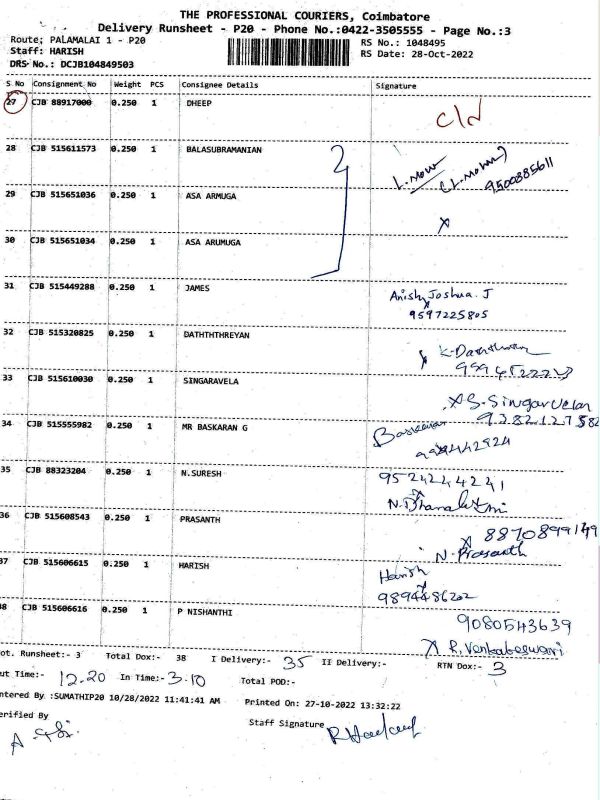 THE PROFESSIONAL COURIERS, Coimbatore
Delivery Runsheet - P20 - Phone No.:0422-3505555 - Page No.:3
Route; PALAMALAI 1 - P20 RS No.: 1048495
Staff: HARISH RS Date: 28-Oct-2022
DRS No.: DCJB104849503
S No Consignment No Weight PCS Consignee Details Signature
27 CJB 88917000 0.250 1 DHEEP
28 CJB 515611573 0.250 1 BALASUBRAMANIAN
9500885611
29 CJB 515651036 0.250 1 ASA ARMUGA
30 CJB 515651034 0.250 1 ASA ARUMUGA
31 CJB 515449288 0.250 1 JAMES Anish Joshua. J
9597225805
32 CJB 515320825 0.250 1 DATHTHTHREYAN
33 CJB 515610030 0.250 1 SINGARAVELA S. Singarvelan
34 CJB 515555982 0.250 1 MR BASKARAN G Baskaran
35 CJB 88323204 0.250 1 N.SURESH 9524244241
N. Dhanalakshmi
36 CJB 515608543 0.250 1 PRASANTH 8870899149
N. Prasanth
37 CJB 515606615 0.250 1 HARISH Harish
9894486202
38 CJB 515606616 0.250 1 P NISHANTHI 9080543639
R. Venkateswari
ot. Runsheet:- 3 Total Dox:- 38 I Delivery:- 35 II Delivery:- RTN Dox:- 3
ut Time:- 12.20 In Time:- 3.10 Total POD:-
ntered By :SUMATHIP20 10/28/2022 11:41:41 AM Printed On: 27-10-2022 13:32:22
erified By Staff Signature